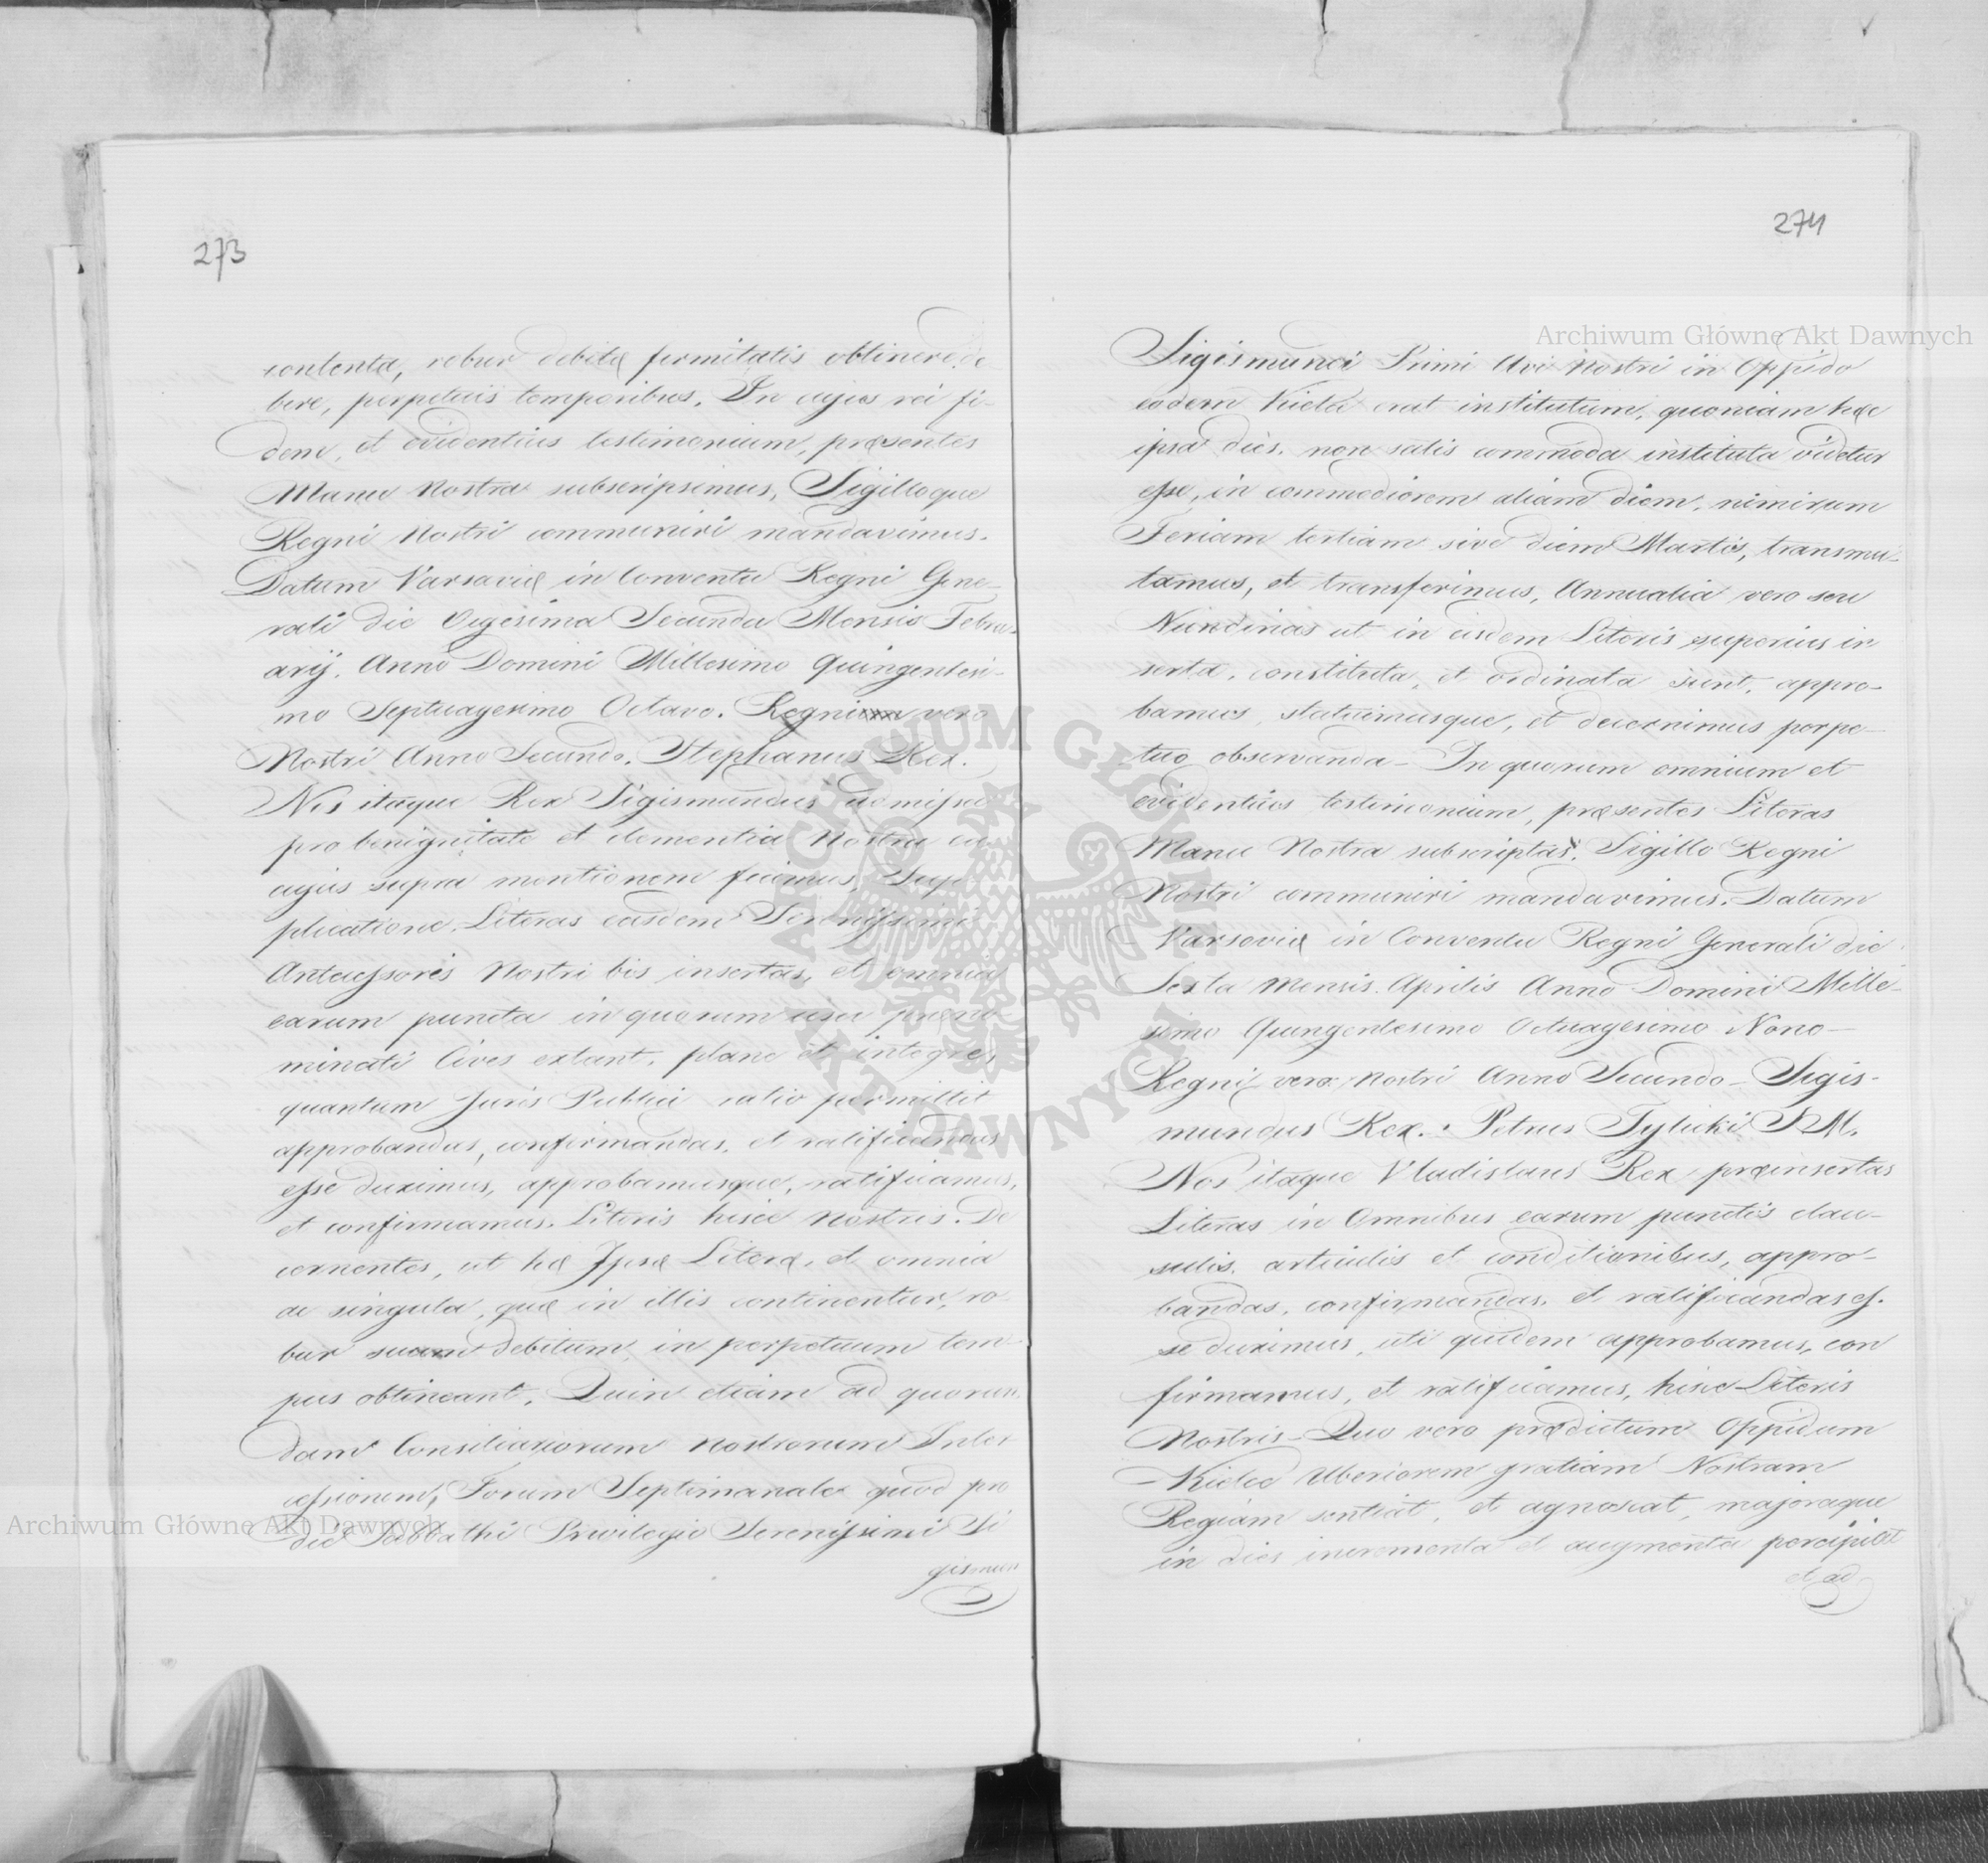 273
contenta, robur debitæ firmitatis obtinere de
bere, perpetuis temporibus. In cujus rei fi-
dem, et evidentius testimonium, præsentes
Manu Nostra subscripsimus, Sigilloque
Regni Nostri communiri mandavimus.
Datum Varsaviæ in Conventu Regni Gene-
rali die Vigesima Secunda Mensis Febru-
arij. Anno Domini Millesimo Quingentesi-
mo Septuagesimo Octavo. Regni vero
Nostri Anno Secundo. Stephanus Rex.
Nos itaque Rex Sigismundus admissa
pro benignitate et clementia Nostra ea
cujus supra mentionem fecimus, Sup-
plicatione, Literas easdem Serenissimi
Antecessoris Nostri his insertas, et omnia
earum puncta in quorum usu præno-
minati Cives extant, plane et integre,
quantum Juris Publici ratio permittit
approbandas, confirmandas, et ratificandas
esse duximus, approbamusque, ratificamus,
et confirmamus. Literis hisce Nostris. De
cernentes, ut hæ Ipsæ Literæ, et omnia
ac singula, quæ in illis continentur, ro
bur suum debitum in perpetuum tem-
pus obtineant. Quin etiam ad quorun
dam Consiliariorum Nostrorum Inter
cessionem, Forum Septimanale quod pro
die Sabbathi Privilegio Serenissimi Si
gismun
274
Sigismundi Primi Avi Nostri in Oppido
eodem Kielce erat institutum, quoniam hæc
ipsa dies, non satis commoda instituta videtur
esse, in commodiorem aliam diem, nimirum
Feriam tertiam sive diem Martis, transmu-
tamus, et transferimus, Annualia vero seu
Nundinas ut in eisdem Literis superius in
serta, constituta, et ordinata sunt, appro-
bamus, statuimusque, et decernimus perpe-
tuo observanda – In quorum omnium et
evidentius testimonium, præsentes Literas
Manu Nostra subscriptas, Sigillo Regni
Nostri communiri mandavimus. Datum
Varsoviæ in Conventu Regni Generali die
Sexta Mensis Aprilis Anno Domini Mille-
simo Quingentesimo Octuagesimo Nono –
Regni vero Nostri Anno Secundo – Sigis-
mundus Rex. Petrus Tylicki
Nos itaque Vladislaus Rex præinsertas
Literas in Omnibus earum punctis clau-
sulis, articulis et conditionibus, appro-
bandas, confirmandas, et ratificandas es-
se duximus, uti quidem approbamus, con
firmamus, et ratificamus, hisce Literis
Nostris – Quo vero prædictum Oppidum
Kielce Uberiorem gratiam Nostram
Regiam sentiat, et agnoscat, majoraque
in dies incrementa et augmenta percipiat
et ad
Archiwum Główne Akt Dawnych
Archiwum Główne Akt Dawnych
ARCHIWUM GŁÓWNE AKT DAWNYCH